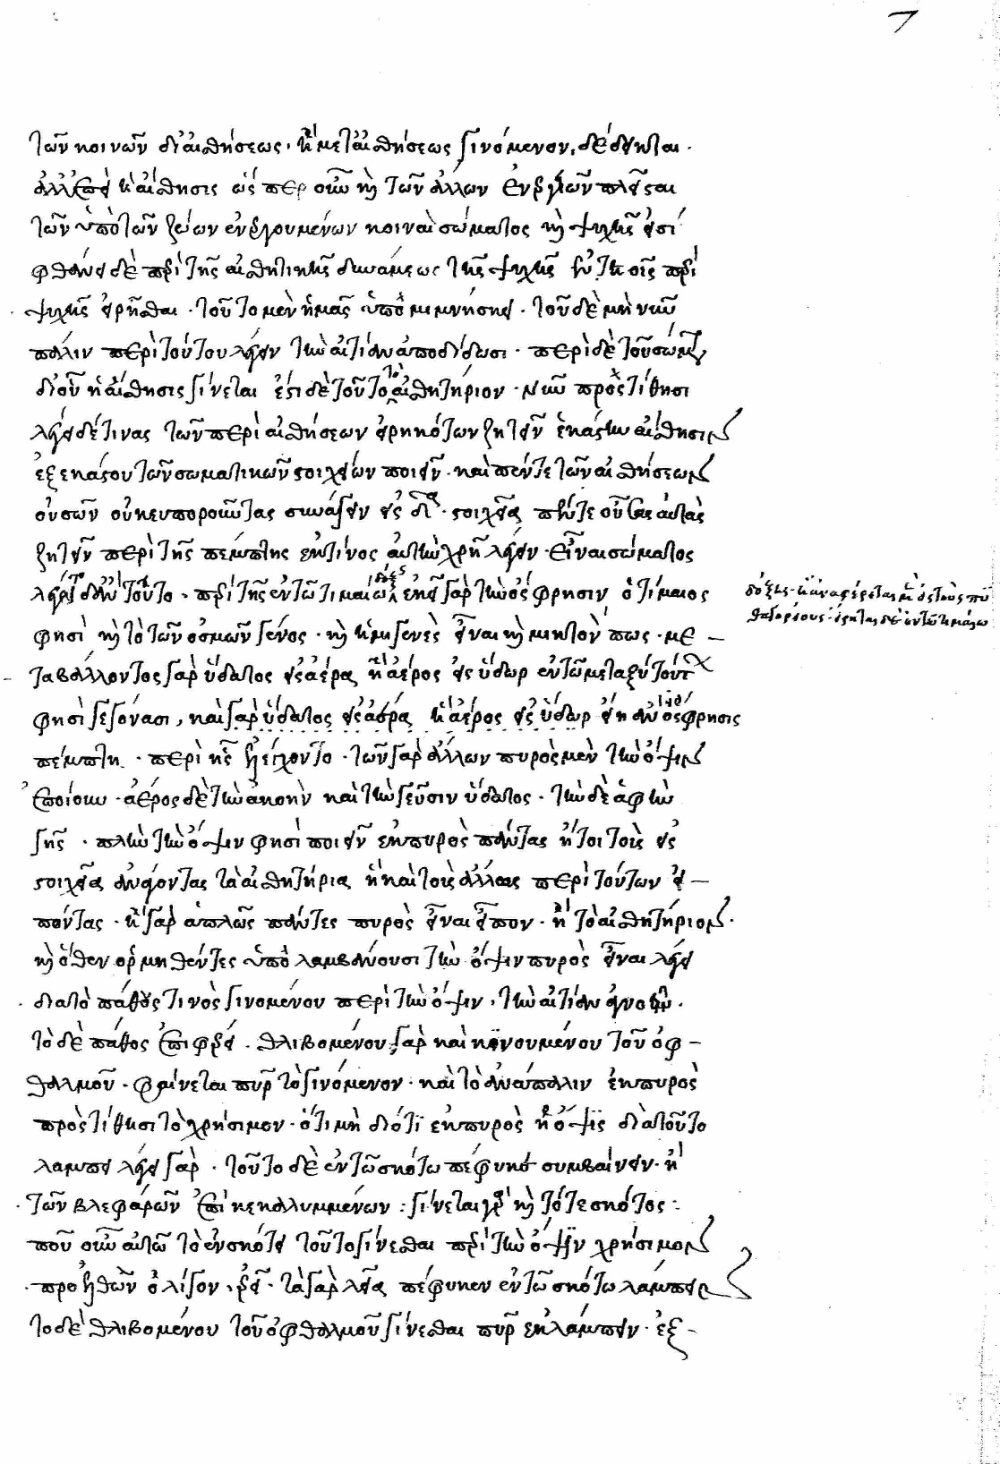 τῶν κοινῶν δι' αἰσθήσεως· ἢ μετ' αἰσθήσεως γινόμενον, δέδεικται·
ἀλλ' ἐπεὶ ἡ αἴσθησις ὥσπερ οὖν καὶ τῶν ἄλλων ἐνεργειῶν πλεῖσται
τῶν ὑπὸ τῶν ζώων ἐνεργουμένων κοιναὶ σώματος καὶ ψυχῆς εἰσί
φθάνει δὲ περὶ τῆς αἰσθητικῆς δυνάμεως τῆς ψυχῆς ἐν τοῖς περὶ
ψυχῆς εἰρῆσθαι· τούτο μὲν ἡμᾶς ὑπομιμνήσκει· τοῦ δὲ μὴ νῦν
πάλιν περὶ τούτου λέγειν τὴν αἰτίαν ἀποδίδωσι· περὶ δὲ τοῦ σώματος
δι' οὗ ἡ αἴσθησις γίνεται ἔστι δὲ τοῦτο τὸ αἰσθητήριον· νῦν προστίθησι
λέγει δέ τινας τῶν περὶ αἰσθήσεων εἰρηκότων ζητεῖν ἑκάστην αἴσθησιν
ἐξ ἑκάστου τῶν σωματικῶν στοιχείων ποιεῖν· καὶ πέντε τῶν αἰσθήσεων
οὐσῶν οὐκ εὐποροῦντας συνάγειν εἰς δ στοιχεῖα πέντε οὔσας αὐτὰς
ζητεῖν περὶ τῆς πέμπτης ἐκ τίνος αὐτὴν χρὴ λέγειν· εἶναι σώματος
λέγει δ' ἂν τοῦτο· περὶ τῆς ἐν τῶ τιμαίω δόξης ἐκεῖ γὰρ τὴν ὄσφρησιν ὁ τίμαιος
φησὶ καὶ τὸ τῶν ὀσμῶν γένος· καὶ ἡμιγενὲς εἶναι καὶ μικτόν πως· με-
ταβάλλοντος γὰρ ὕδατος εἰς ἀέρα ἢ ἀέρος εἰς ὕδωρ ἐν τῶ μεταξὺ τούτων
φησὶ γεγόνασι, καὶ γὰρ ὕδατος εἰς ἀέρα ἢ ἀέρος εἰς ὕδωρ εἴη ἂν ὄσφρησις
πέμπτη· περὶ ἧς ἐζήτουν τὸ· τῶν γὰρ ἄλλων πυρὸς μὲν τὴν ὄψιν
ἐποίουν· ἀέρος δὲ τὴν ἀκοὴν καὶ τὴν γεῦσιν ὕδατος· τὴν δὲ ἁφὴν
γῆς· πλὴν τὴν ὄψιν φησὶ ποιεῖν ἐκ πυρὸς πάντας ἤτοι τοὺς εἰς
στοιχεῖα ἀνάγοντας τὰ αἰσθητήρια ἢ καὶ τοὺς ἄλλως περὶ τούτων εἰ-
πόντας· ἢ γὰρ ἁπλῶς πάντες πυρὸς εἶναι εἶπον· τὸ αἰσθητήριον·
καὶ ὅθεν ὁρμηθέντες ὑπολαμβάνουσι τὴν ὄψιν πυρὸς εἶναι λέγει
διὰ τὸ πάθους τινὸς γινομένου περὶ τὴν ὄψιν, τὴν αἰτίαν ἀγνοεῖν·
τὸ δὲ πάθος ἐπιφέρει· θλιβομένου γὰρ καὶ κινουμένου τοῦ ὀφ-
θαλμοῦ· φαίνεται πῦρ τὸ γινόμενον· καὶ τὸ ἀνάπαλιν ἐκ πυρὸς
προστίθησι τὸ χρήσιμον· ὅτι μὴ διότι ἐκ πυρὸς ἡ ὄψις διὰ τοῦτο
λάμπει λέγει γάρ· τοῦτο δὲ ἐν τῶ σκότω πέφυκε συμβαίνειν· ἢ
τῶν βλεφάρων ἐπικεκαλυμμένων: γίνεται γὰρ καὶ τότε σκότος:
ποῦ οὖν αὐτῶ τὸ ἐν σκότει τοῦτο γίνεσθαι περὶ τὴν ὄψιν χρήσιμον
προελθὼν ὀλίγον, ἐρεῖ· τὰ γὰρ λεῖα πέφυκεν ἐν τῶ σκότω λάμπειν
τὸ δὲ θλιβομένου τοῦ ὀφθαλμοῦ γίνεσθαι πῦρ ἐκλάμπειν· ἐξ-